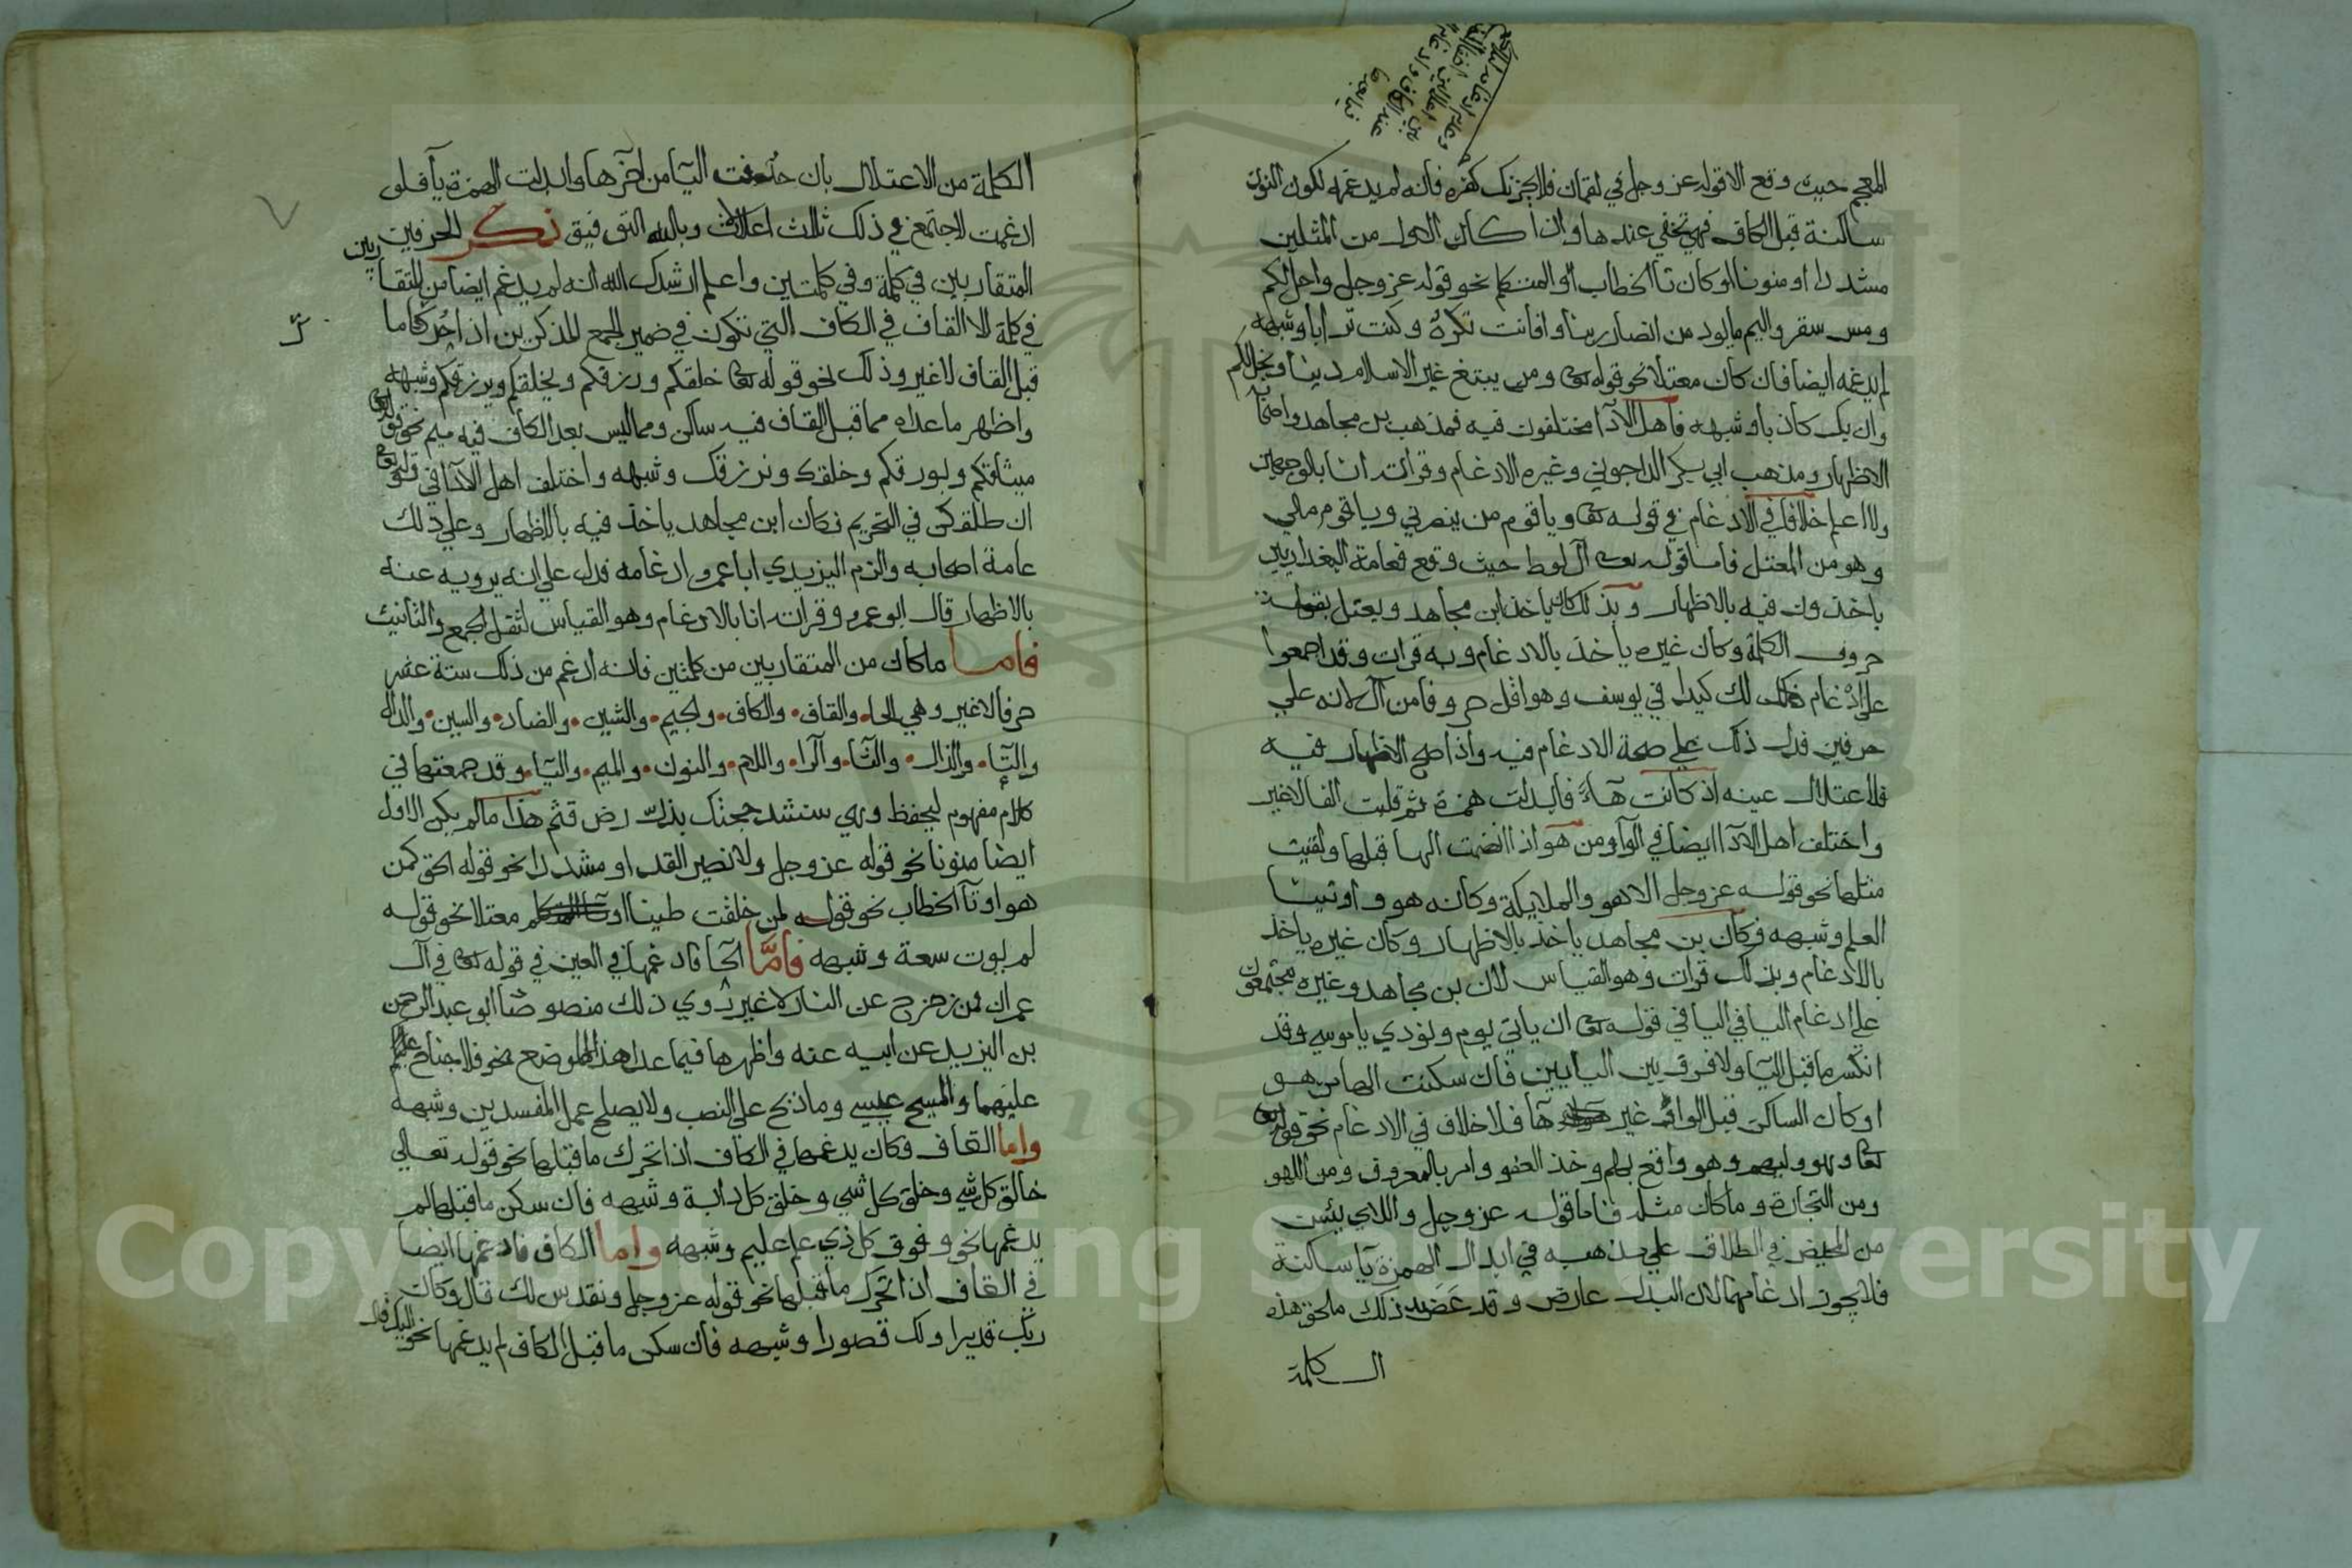 المعجم حيث وقع الا قوله عز وجل في لقمان فلا يحزنك كفره فانه لم يدغمه لكون النون
ساكنة قبل الكاف فهي تخفي عندها واذا كان الاول من المثلين
مشددا او منونا او كان تا الخطاب او المتكلم نحو قوله عز وجل واحل لكم
ومس سقر واليم ما لود من انصار ربنا وافانت تكره وكنت ترابا وشبهه
لم يدغمه ايضا فان كان معتلا نحو قوله تعالى ومن يبتغ غير الاسلام دينا ويخل لكم
وان يك كاذبا وشبهه فاهل الادآ مختلفون فيه فمذهب بن مجاهد واصحابه
الاظهار ومذهب ابي بكر الداجوني وغيره الادغام وقرات انا بالوجهين
ولا اعلم خلافا في الادغام في قوله تعالى ويا قوم من ينصرني ويا قوم مالي
وهو من المعتل فاما قوله تعالى آل لوط حيث وقع فعامة البغداديين
ياخذون فيه بالاظهار وبذلك كان ياخذ ابن مجاهد ويعتل بقلة
حروف الكلمة وكان غيره ياخذ بالادغام وبه قرات وقد اجمعوا
على ادغام لك كيدا في يوسف وهو اقل حروفا من آل لانه علي
حرفين فدل ذلك علي صحة الادغام فيه واذا صح الاظهار فيه
فلاعتلال عينه اذ كانت هآءً فابدلت همزة ثم قلبت الفا لا غير
واختلف اهل الادآ ايضا في الواو من هو اذا انضمت الها قبلها ولقيت
مثلها نحو قوله عز وجل الا هو والملايكة وكانه هو واوتينا
العلم وشبهه فكان بن مجاهد ياخذ بالاظهار وكان غيره ياخذ
بالادغام وبذلك قرات وهو القياس لان بن مجاهد وغيره مجتمعون
علي ادغام اليا في اليا في قوله تعالى ان ياتي يوم ونودي يا موسي وقد
انكسر ما قبل اليآ ولا فرق بين اليايين فان سكنت الها من هو
او كان الساكن قبل الواو غير هآ فلا خلاف في الادغام نحو قوله
تعالى وهو وليهم وهو واقع بهم وخذ العفو وامر بالمعروف ومن اللهو
ومن التجارة وما كان مثله فاما قوله عز وجل واللاي يئسن
من المحيض في الطلاق علي مذهبه في ابدال الهمزة يآ ساكنة
فلا يجوز ادغامها لان البدل عارض وقد عَضَد ذلك ما لحق هذه
الكلمة
الكلمة من الاعتلال بان حذفت اليآ من آخرها وابدلت الهمزة يآ فلو
ادغمت لاجتمع في ذلك ثلاث اعلالات وبالله التوفيق ذكر الحرفين
المتقاربين في كلمة وفي كلمتين واعلم ارشدك الله انه لم يدغم ايضا من المتقاربين
في كلمة الا القاف في الكاف التي تكون في ضمير الجمع المذكرين اذا تحرك ما
قبل القاف لا غير وذلك نحو قوله تعالى خلقكم ورزقكم ويخلقكم ويرزقكم وشبهه
واظهر ما عداه مما قبل القاف فيه ساكن ومما ليس بعد الكاف فيه ميم نحو قوله تعالى
ميثاقكم وبورقكم وخلقك ونرزقك وشبهه واختلف اهل الادآ في قوله تعالى
ان طلقكن في التحريم فكان ابن مجاهد ياخذ فيه بالاظهار وعلي ذلك
عامة اصحابه والزم اليزيدي ابا عمرو ادغامه فدل علي انه يرويه عنه
بالاظهار قال ابو عمرو وقرات انا بالادغام وهو القياس لثقل الجمع والتانيث
فاما ما كان من المتقاربين من كلمتين فانه ادغم من ذلك ستة عشر
حرفا لا غير وهي الحا والقاف والكاف والجيم والشين والضاد والسين والدال
والتا والذال والثا والرا واللام والنون والميم والبا وقد جمعتها في
كلام مفهوم ليحفظ وهي سنشد حجتك بذل رض قثم هذا ما لم يكن الاول
ايضا منونا نحو قوله عز وجل ولا نصير لقد او مشددا نحو قوله الحق كمن
هو او تآ الخطاب نحو قوله لمن خلقت طينا او معتلا نحو قوله
لم يوت سعة وشبهه فاَمَّا الحآ فادغمها في العين في قوله تعالى في آل
عمران فمن زحزح عن النار لا غير رُوي ذلك منصوصا ابو عبد الرحمن
بن اليزيدي عن ابيه عنه واظهرها فيما عدا هذا الموضع نحو فلا جناح
عليهما والمسيح عيسي وما ذبح علي النصب ولا يصلح عمل المفسدين وشبهه
واما القاف فكان يدغمها في الكاف اذا تحرك ما قبلها نحو قوله تعالي
خالق كل شي وخلق كل شي وخلق كل دابة وشبهه فان سكن ما قبلها لم
يدغمها نحو وفوق كل ذي علم عليم وشبهه واما الكاف فادغمها ايضا
في القاف اذا تحرك ما قبلها نحو قوله عز وجل ونقدس لك قال وكان
ربك قديرا ولك قصورا وشبهه فان سكن ما قبل الكاف لم يدغمها نحو اليك قال
Copyright © King Saud University
195